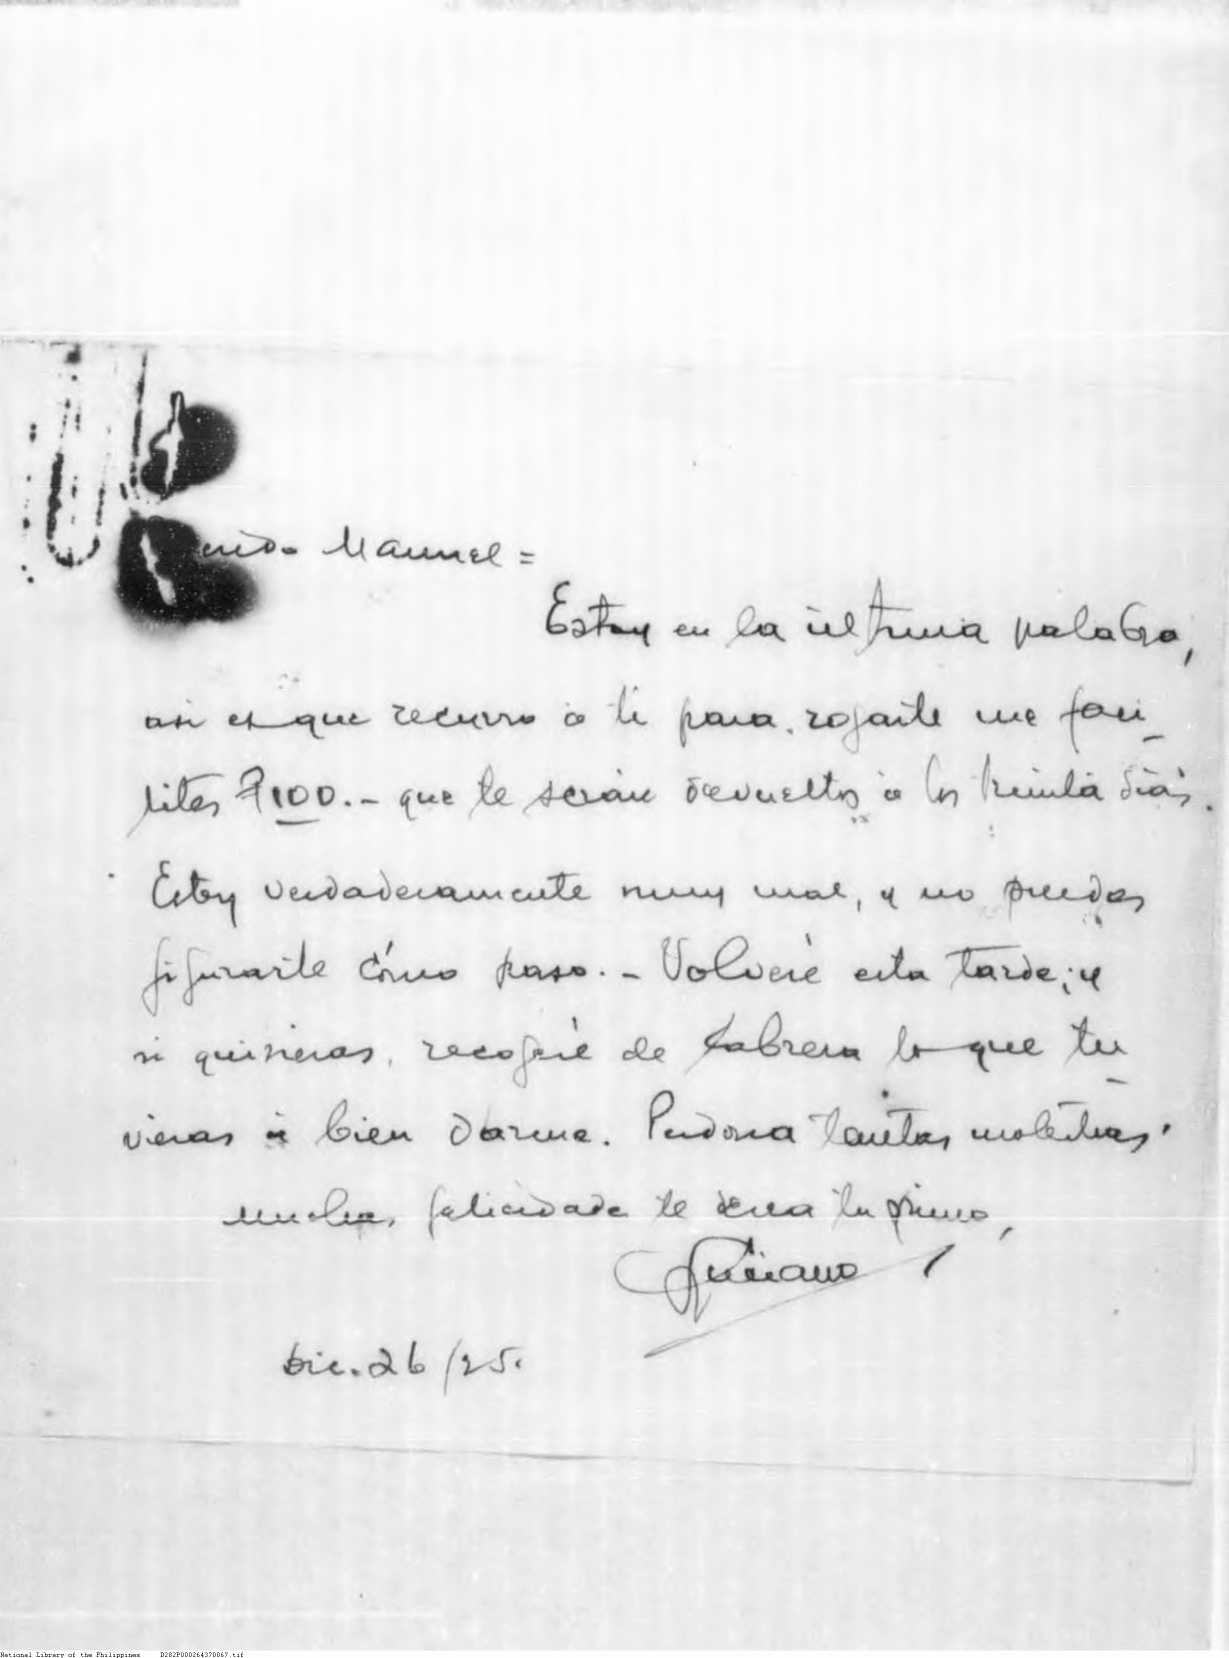 erido Manuel =
Estoy en la última palabra,
asi es que recurro a ti para rogarte me faci-
lites ₱100.- que te serán devueltos à los treinta dias.
Estoy verdaderamente muy mal, y no puedes
figurarte cómo paso. - Volveré esta tarde; y
si quisieras, recogeré de Cabrera lo que tu-
vieras à bien darme. Perdona tantas molestias.
Muchas felicidades te desea tu primo,
Luciano
Dic. 26/25.
National Library of the Philippines D282P000264370067.tif